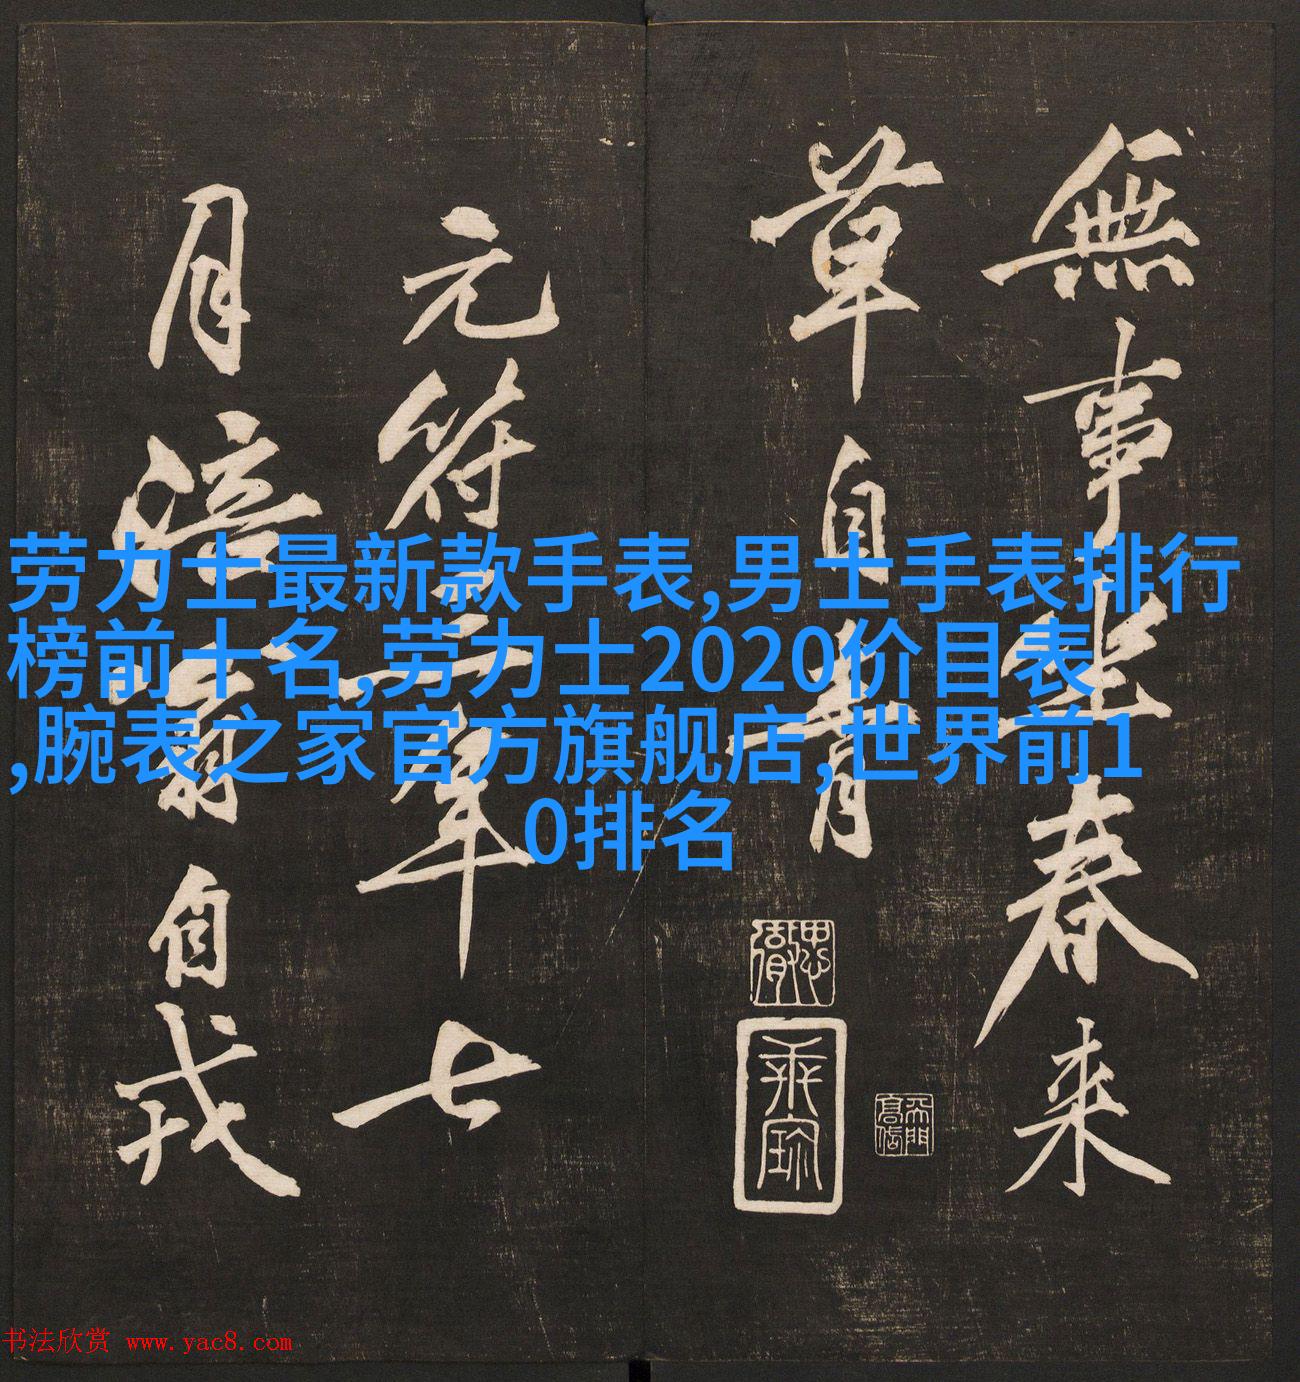 無事坐春来
草自青
元符三年七
月涪翁自戎
劳力士最新款手表,男士手表排行
榜前十名,劳力士2020价目表
,腕表之家官方旗舰店,世界前1
0排名
书法欣赏 www.yac8.com